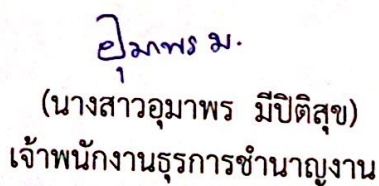 อุมาพร ม.
(นางสาวอุมาพร มีปิติสุข)
เจ้าพนักงานธุรการชำนาญงาน